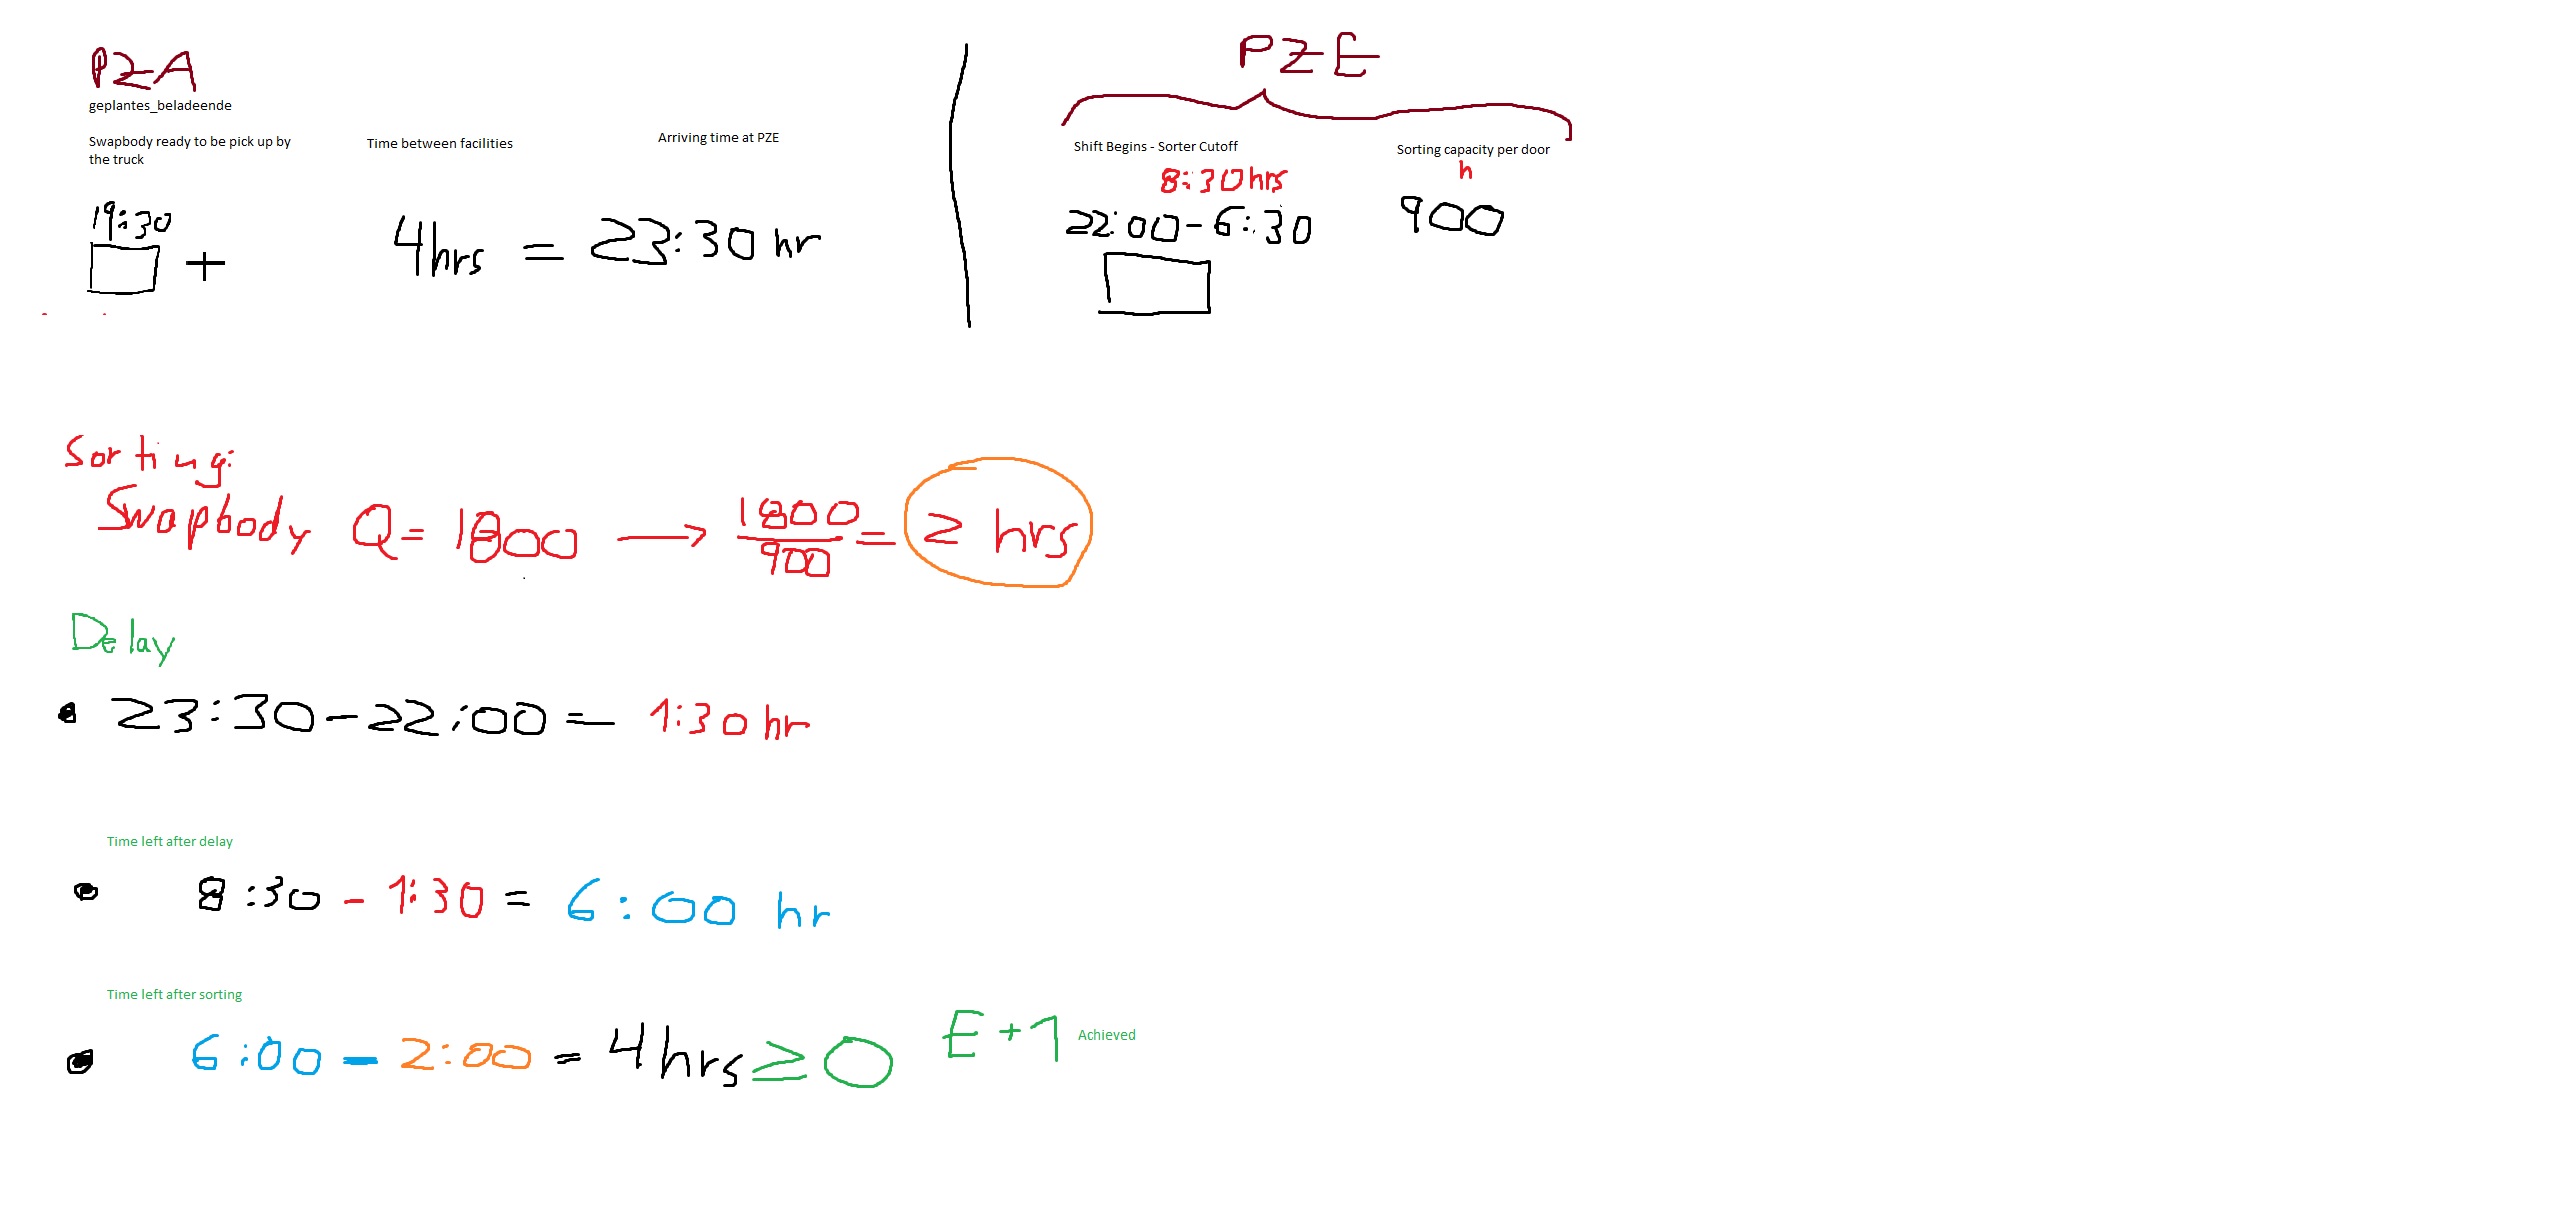 PZA
geplantes_beladeende
Swapbody ready to be pick up by
the truck
19:30
+
Time between facilities
4hrs
=
Arriving time at PZE
23:30 hr
PZE
Shift Begins - Sorter Cutoff
8:30hrs
22:00-6:30
Sorting capacity per door
h
900
Sorting:
Swapbody Q= 1800 → 1800/900 = 2 hrs
Delay
• 23:30-22:00= 1:30 hr
Time left after delay
• 8:30 - 1:30 = 6:00 hr
Time left after sorting
• 6:00 - 2:00 = 4hrs ≥0 E+1 Achieved